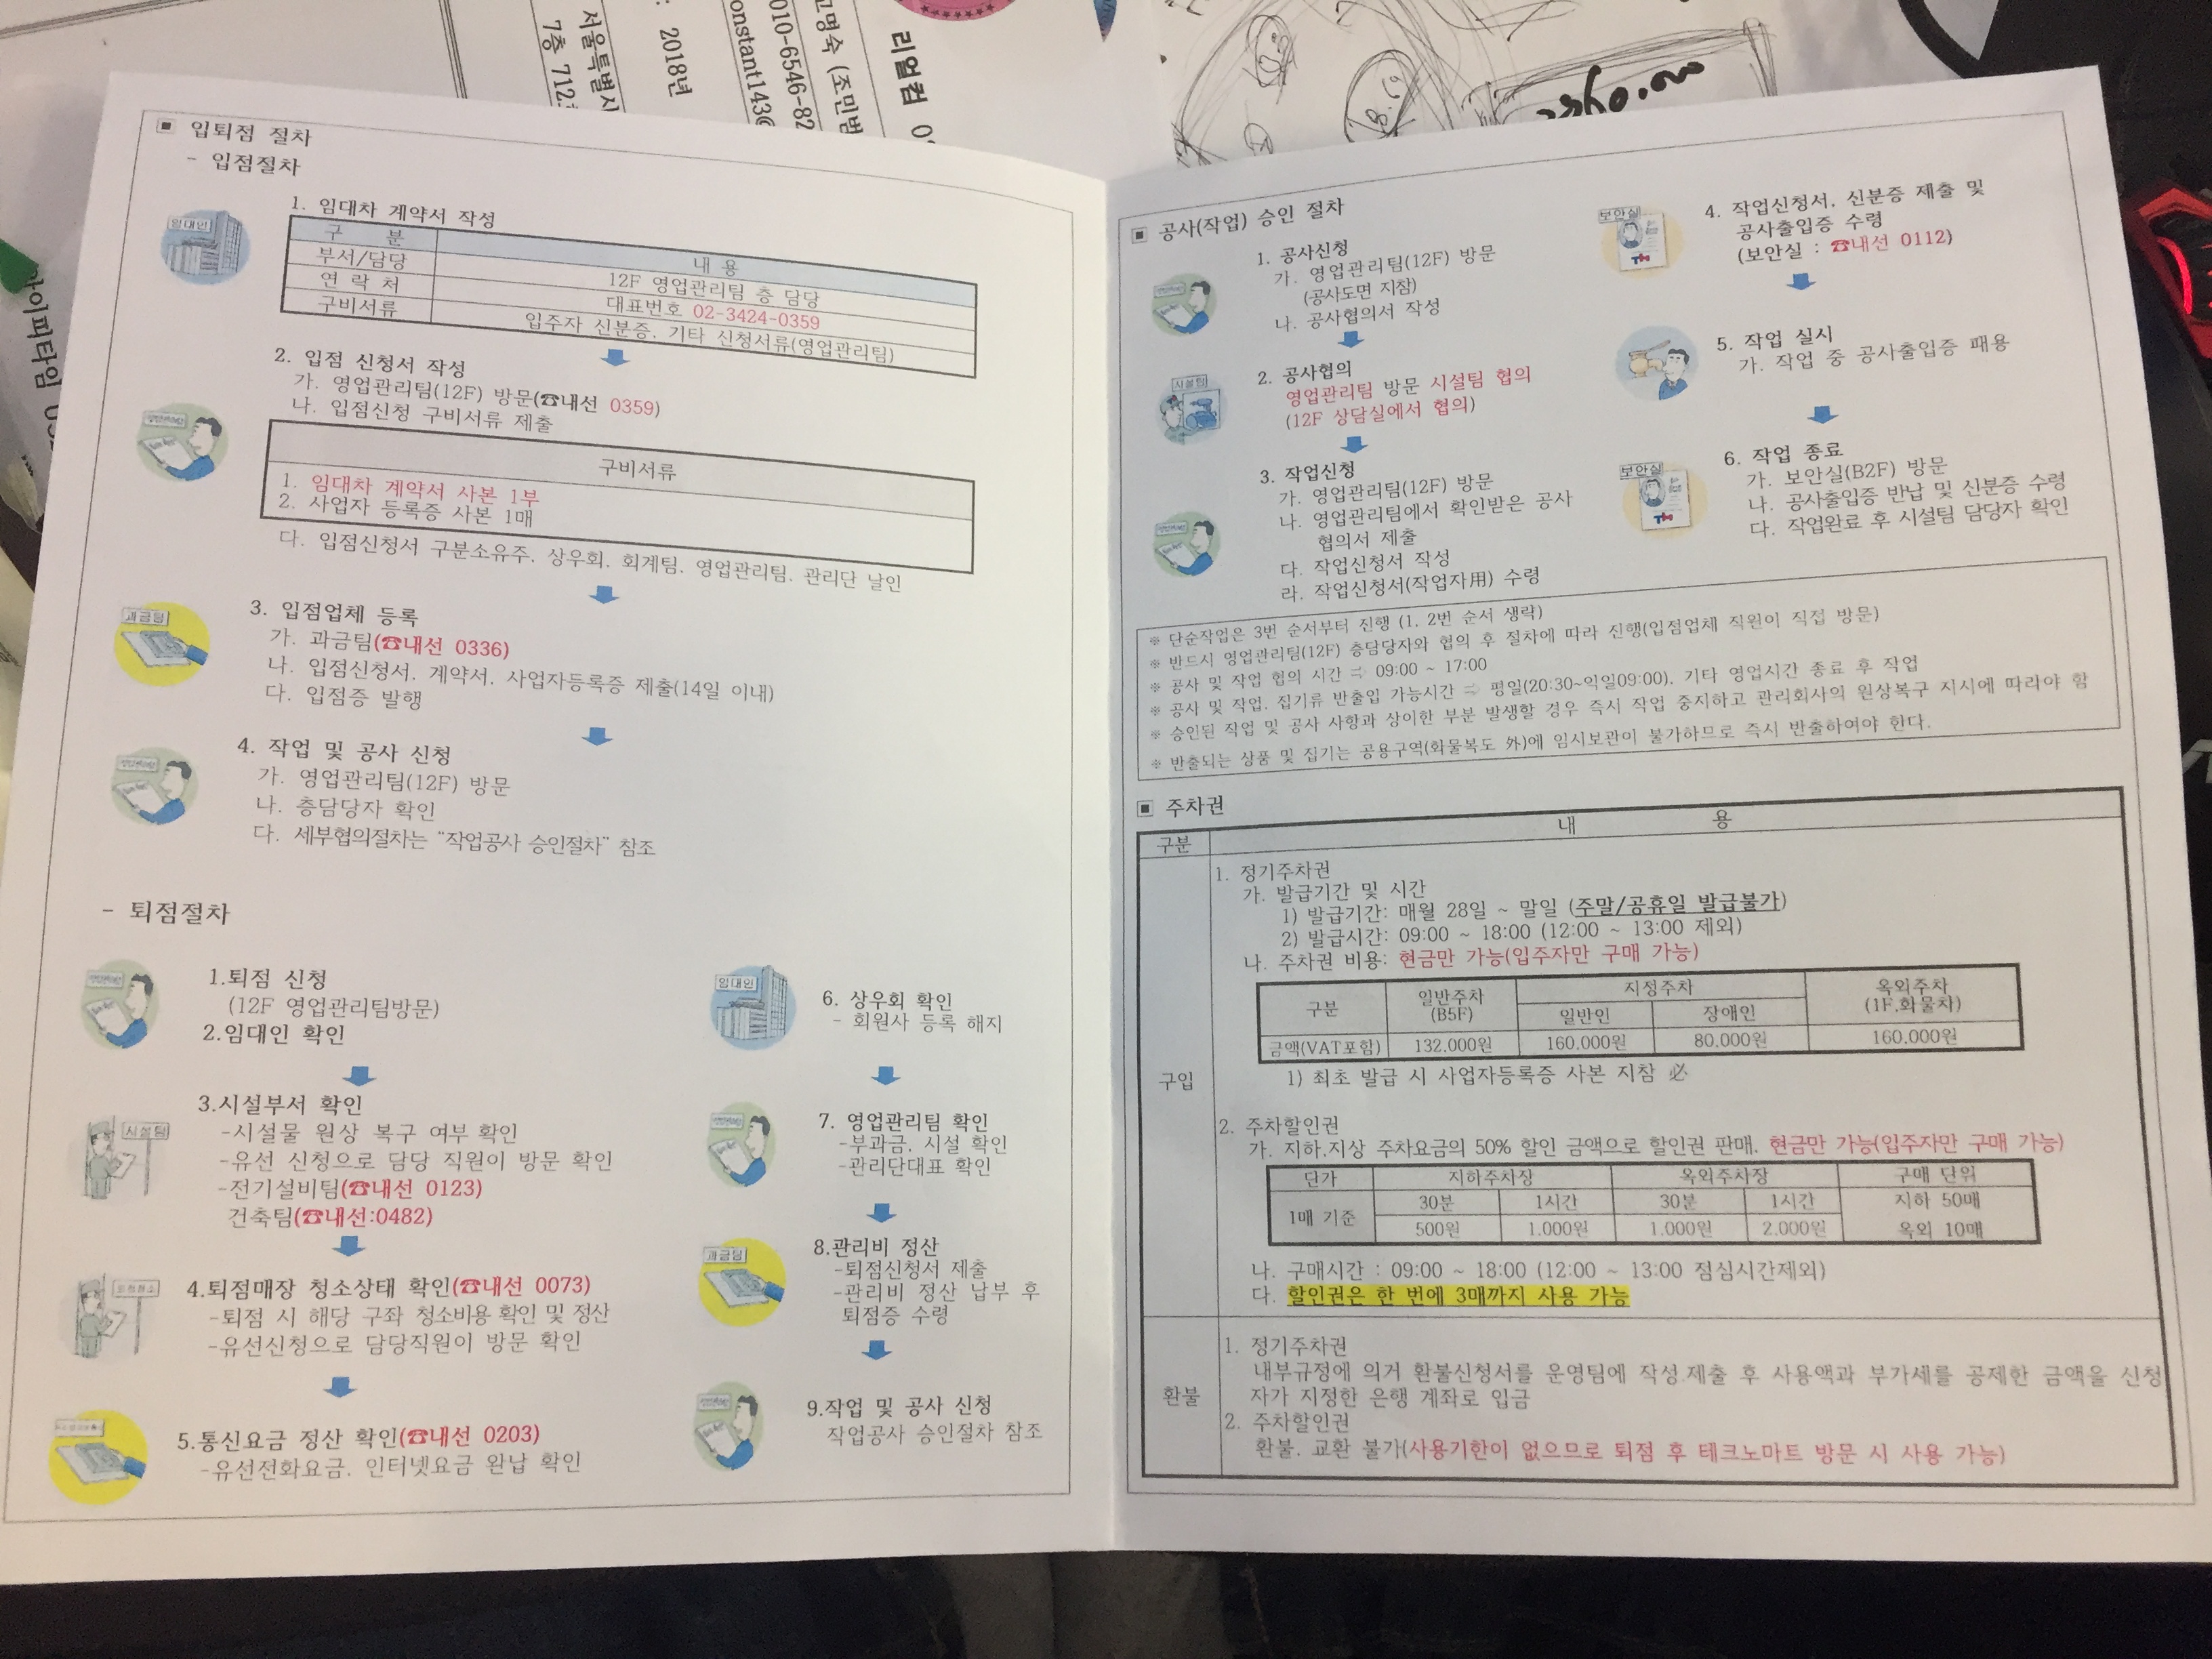 서울특별시
7층 712
: 2018년
고명숙 (조민범
010-6546-82
onstant143@
리얼컴
아이피타임
▣ 입퇴점 절차
- 입점절차
임대인
1. 임대차 계약서 작성
구 분 내 용
부서/담당 12F 영업관리팀 층 담당
연 락 처 대표번호 02-3424-0359
구비서류 입주자 신분증, 기타 신청서류(영업관리팀)
2. 입점 신청서 작성
가. 영업관리팀(12F) 방문(☎내선 0359)
나. 입점신청 구비서류 제출
구비서류
1. 임대차 계약서 사본 1부
2. 사업자 등록증 사본 1매
다. 입점신청서 구분소유주, 상우회, 회계팀, 영업관리팀, 관리단 날인
과금팀
3. 입점업체 등록
가. 과금팀(☎내선 0336)
나. 입점신청서, 계약서, 사업자등록증 제출(14일 이내)
다. 입점증 발행
4. 작업 및 공사 신청
가. 영업관리팀(12F) 방문
나. 층담당자 확인
다. 세부협의절차는 "작업공사 승인절차" 참조
- 퇴점절차
1.퇴점 신청
(12F 영업관리팀방문)
2.임대인 확인
시설팀
3.시설부서 확인
-시설물 원상 복구 여부 확인
-유선 신청으로 담당 직원이 방문 확인
-전기설비팀(☎내선 0123)
건축팀(☎내선:0482)
4.퇴점매장 청소상태 확인(☎내선 0073)
-퇴점 시 해당 구좌 청소비용 확인 및 정산
-유선신청으로 담당직원이 방문 확인
5.통신요금 정산 확인(☎내선 0203)
-유선전화요금, 인터넷요금 완납 확인
임대인
6. 상우회 확인
- 회원사 등록 해지
7. 영업관리팀 확인
-부과금, 시설 확인
-관리단대표 확인
과금팀
8.관리비 정산
-퇴점신청서 제출
-관리비 정산 납부 후
퇴점증 수령
9.작업 및 공사 신청
작업공사 승인절차 참조
▣ 공사(작업) 승인 절차
1. 공사신청
가. 영업관리팀(12F) 방문
(공사도면 지참)
나. 공사협의서 작성
시설팀
2. 공사협의
영업관리팀 방문 시설팀 협의
(12F 상담실에서 협의)
3. 작업신청
가. 영업관리팀(12F) 방문
나. 영업관리팀에서 확인받은 공사
협의서 제출
다. 작업신청서 작성
라. 작업신청서(작업자用) 수령
보안실
4. 작업신청서, 신분증 제출 및
공사출입증 수령
(보안실 : ☎내선 0112)
5. 작업 실시
가. 작업 중 공사출입증 패용
보안실
6. 작업 종료
가. 보안실(B2F) 방문
나. 공사출입증 반납 및 신분증 수령
다. 작업완료 후 시설팀 담당자 확인
※ 단순작업은 3번 순서부터 진행 (1, 2번 순서 생략)
※ 반드시 영업관리팀(12F) 층담당자와 협의 후 절차에 따라 진행(입점업체 직원이 직접 방문)
※ 공사 및 작업 협의 시간 ⇨ 09:00 ~ 17:00
※ 공사 및 작업, 집기류 반출입 가능시간 ⇨ 평일(20:30~익일09:00), 기타 영업시간 종료 후 작업
※ 승인된 작업 및 공사 사항과 상이한 부분 발생할 경우 즉시 작업 중지하고 관리회사의 원상복구 지시에 따라야 함
※ 반출되는 상품 및 집기는 공용구역(화물복도 外)에 임시보관이 불가하므로 즉시 반출하여야 한다.
▣ 주차권
구분 내 용
구입
1. 정기주차권
가. 발급기간 및 시간
1) 발급기간: 매월 28일 ~ 말일 (주말/공휴일 발급불가)
2) 발급시간: 09:00 ~ 18:00 (12:00 ~ 13:00 제외)
나. 주차권 비용: 현금만 가능(입주자만 구매 가능)
구분 일반주차 (B5F) 지정주차 옥외주차 (1F.화물차)
일반인 장애인
금액(VAT포함) 132,000원 160,000원 80,000원 160,000원
1) 최초 발급 시 사업자등록증 사본 지참 必
2. 주차할인권
가. 지하.지상 주차요금의 50% 할인 금액으로 할인권 판매. 현금만 가능(입주자만 구매 가능)
단가 지하주차장 옥외주차장 구매 단위
1매 기준 30분 1시간 30분 1시간 지하 50매
500원 1,000원 1,000원 2,000원 옥외 10매
나. 구매시간 : 09:00 ~ 18:00 (12:00 ~ 13:00 점심시간제외)
다. 할인권은 한 번에 3매까지 사용 가능
환불
1. 정기주차권
내부규정에 의거 환불신청서를 운영팀에 작성.제출 후 사용액과 부가세를 공제한 금액을 신청
자가 지정한 은행 계좌로 입금
2. 주차할인권
환불, 교환 불가(사용기한이 없으므로 퇴점 후 테크노마트 방문 시 사용 가능)